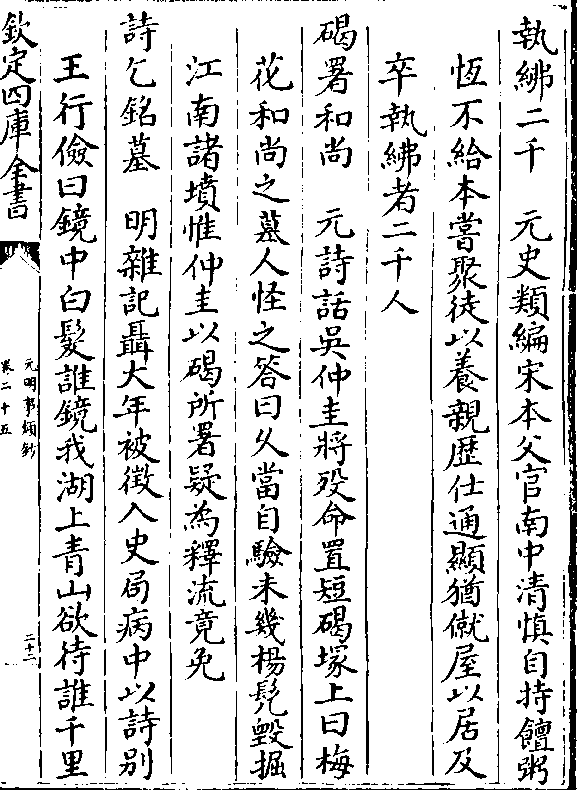 執紼二千　元史類編宋本父官南中清慎自持饘粥
恆不給本嘗聚徒以養親歴仕通顯猶僦屋以居及
卒執紼者二千人
碣署和尚　元詩話吳仲圭將歿命置短碣塚上曰梅
花和尚之墓人怪之答曰久當自驗未幾楊髠毀掘
江南諸墳惟仲圭以碣所署疑為釋流竟免
詩乞銘墓　明雜記聶大年被徴入史局病中以詩别
王行儉曰鏡中白髮誰鏡我湖上青山欲待誰千里
欽定四庫全書
元明事類鈔
卷二十五
二十二